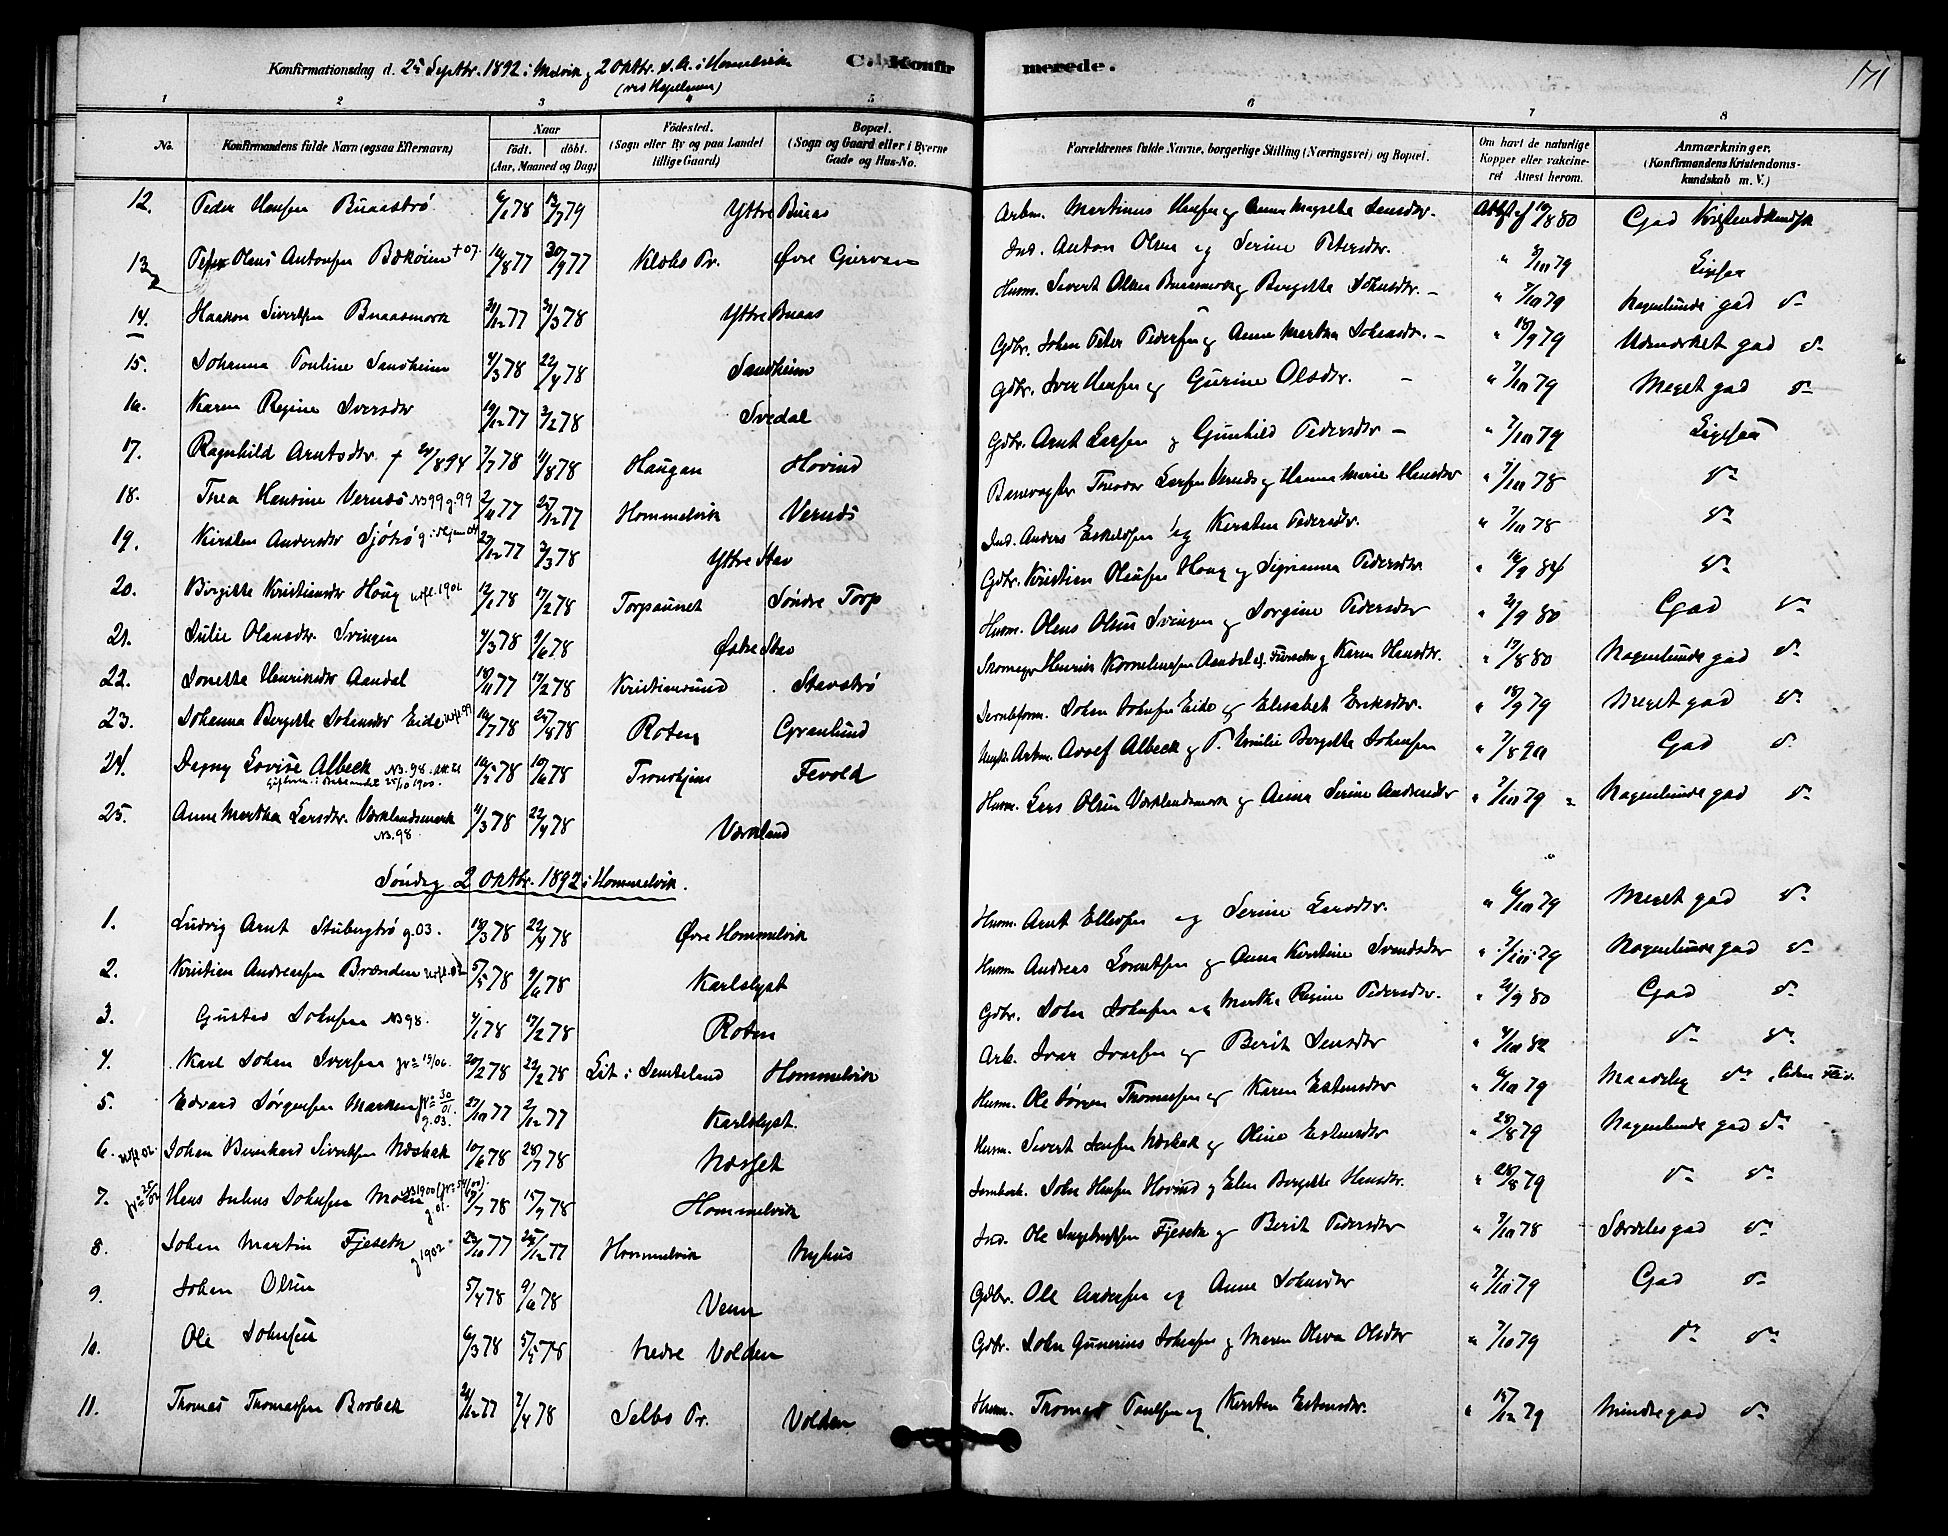 Konfirmationsdag d. 25 Septbr. 1892 i Malvik og 2 Oktbr. s.A. i Hommelvik C. Konfirmerede. 171
(ved Kapellanen)
1 2 3 4 5 6 7 8
No. Konfirmandens fulde Navn (ogsaa Efternavn) Naar Födt. döbt. (Aar, Maaned og Dag) Födested. (Sogn eller By og paa Landet tillige Gaard) Bopæl. (Sogn og Gaard eller i Byerne Gade og Hus-No. Forældrenes fulde Navne, borgerlige Stilling (Næringsvei) og Bopæl. Om havt de naturlige Kopper eller vakcineret Attest herom. Anmærkninger. (Konfirmandens Kristendomskundskab m. V.)
12. Peder Hansen Buaastrø 6/1 78 13/7 79 Yttre Buaas Arbm. Martinus Hansen og Anna Margretha Jensdtr. Attst af 19/8 80 Gad Kristendkundsk
13 Peter Olaus Antonsen Bækøien + 07. 16/8 77 30/9 77 Klæbo Pr. Øvre Gjervan Ind. Anton Olsen og Serine Petersdtr. " 3/10 79 Ligesaa
14. Haakon Sivertsen Buaasmork 31/12 77 31/3 78 Yttre Buaas Husm. Sivert Olsen Buaasmork og Bergitte Johnsdtr. - " 7/10 79 Nogenlunde gad do
15. Johanna Pauline Sandheim 4/3 78 22/4 78 Sandheim Gdbr. Johan Peter Pedersen og Anne Martha Johnsdtr. - " 18/9 79 Udmærket gad do
16. Karen Regine Iversdtr 19/12 77 3/2 78 Svedal Gdbr. Iver Hansen og Gurine Olsdtr. - " 7/10 79 Meget gad do
17. Ragnhild Arntsdtr. + 24/8 94 7/7 78 11/8 78 Haugan Hovind Gdbr. Arnt Larsen og Gunhild Pedersdtr - " 7/10 79 Ligesaa
18. Thea Hansine Vernæs N3 99 g. 99 2/11 77 25/12 77 Hommelvik Vernæs Banevogter Theodor Larsen Vernæs og Hanna Marie Hansdtr " 7/10 78 do
19. Kirsten Andersdtr Sjøtrø 27/12 77 3/3 78 Yttre Stav Ind. Anders Eskildsen og Kirsten Pedersdtr. " 7/10 78 do
20. Birgitte Kristiansdtr Haug utfl. 1902 12/1 78 17/2 78 Torpaunet Søndre Torp Gdbr. Kristian Olausen Haug og Sigrianna Pedersdtr. " 16/9 84 do
21. Julie Olausdtr. Svingen 4/3 78 9/6 78 Østre Stav Husm. Olaus Olsen Svingen og Jorgine Pedersdtr " 21/9 80 Gad do
22. Jonetta Henriksdtr Aandal 18/11 77 17/2 78 Kristiansund Stavstrø Skomager Henrik Kornelinssen Aandal og Karen Hansdtr. " 19/8 80 Nogenlunde gad do
23. Johanna Bergitte Johansdtr Eide utfl. 99 16/7 78 25/8 78 Roten Granlund Jernbform. Johan Johnsen Eide og Elisabet Eriksdtr. " 18/9 79 Meget gad do
24. Dagny Lovise Albeck N3. 98. 16/5 78 10/6 78 Trondhjem Fevold Arbm. Adolf Albeck og F. Emilie Bergitte Johansen " 7/8 90 Gad do
25/10 1900.
25. Anne Martha Larsdtr. Værklandsmork 11/3 78 22/4 78 Værkland Husm. Lars Olsen Værklandsmork og Anna Serine Andreasdtr " 7/10 79 Nogenlunde gad do
N3. 98
Søndag 2 Oktbr. 1892 i Hommelvik.
1. Ludvig Arnt Stubergtrø g. 03. 18/3 78 22/4 78 Øvre Hommelvik Husm. Arnt Ellefsen og Serine Larsdtr. " 6/10 79 Meget gad do
2. Kristian Andreassen Brænden utfl. 02 5/5 78 9/6 78 Karlslyst Husm Andreas Lorentsen og Anna Kirstine Svendsdtr " 7/10 79 Nogenlunde gad do
3. Gustav Johnsen N3 98. 4/1 78 17/2 78 Roten Gdbr. John Johnsen og Martha Regine Pedersdtr. " 21/9 80 Gad do
4. Karl Johan Iversen 20/2 78 22/2 78 Lit i Jemteland Hommelvik Arb. Ivar Ivarsen og Berit Jensdtr " 4/10 82 do do
5. Edvard Jørgensen Marken g. 03. 27/10 77 2/12 77 Karlslyst. Husm. Ole Jørgen Thomassen og Karen Estensdtr " 6/10 79 Maadelig do, liden Flid.
6. utfl 02. Johan Bernhard Sivertsen Næsbak 10/6 78 28/7 78 Næsset Husm. Sivert Larsen Næsbak og Oline Estensdtr " 28/8 79 Nogenlunde gad do
7. Hans Julius Johnsen Moen g. 01. 1/7 78 15/7 78 Hommelvik John Hansen Hovind og Elen Bergitte Hansdtr. " 28/8 79 do do
8. Johan Martin Fjesetk g 1902 23/10 77 25/12 77 Hommelvik Nyhus Ind. Ole Ingebrigtsen Fjesetk og Berit Pedersdtr " 7/10 78 Særdeles gad do
9. Johan Olsen 5/4 78 9/6 78 Venn Gdbr. Ole Andersen og Anne Johnsdtr " 7/10 79 Gad do
10. Ole Johnsen 6/3 78 5/5 78 Nedre Volden Gdbr. John Gunerius Johnsen og Maren Oliva Olsdtr " 7/10 79 do do
11. Thomas Thomassen Brobak 26/12 77 7/4 78 Selbo Pr. Volden Husm. Thomas Paulsen og Kirsten Estensdtr. " 15/12 79 Mindre gad do